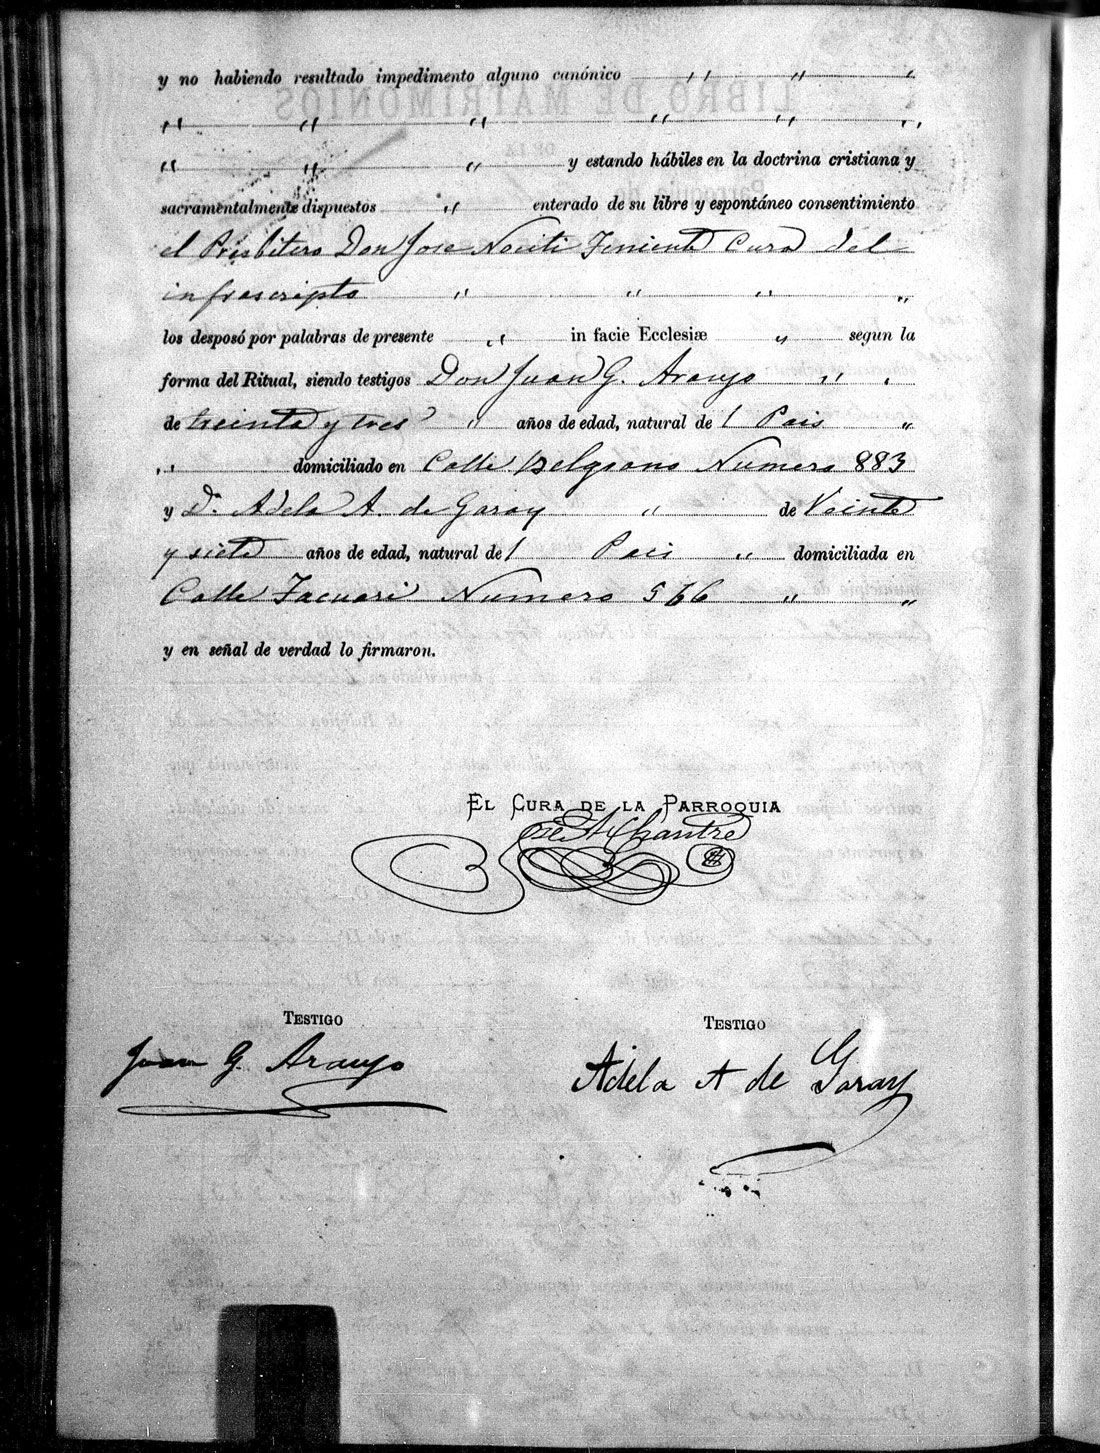 y no habiendo resultado impedimento alguno canónico " " "
" " " " " "
" " " y estando hábiles en la doctrina cristiana y
sacramentalmente dispuestos " enterado de su libre y espontáneo consentimiento
el Presbitero Don Jose Nociti Teniente Cura del
infrascripto " " " "
los desposó por palabras de presente " in facie Ecclesiæ " segun la
forma del Ritual, siendo testigos Don Juan G. Araujo " "
de treinta y tres " años de edad, natural del Pais "
" domiciliado en Calle Belgrano Numero 883
y Da. Adela A. de Garay " de Veinte
y siete años de edad, natural del Pais " domiciliada en
Calle Tacuari Numero 566 " "
y en señal de verdad lo firmaron.
EL CURA DE LA PARROQUIA
José A Chantre
TESTIGO
Juan G. Araujo
TESTIGO
Adela A de Garay